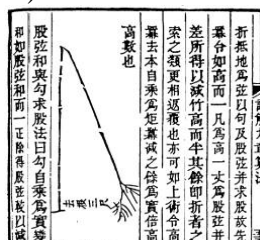 折抵地為弦以句及股弦并求股故先
羃令如高而一凡為高一丈為股弦并
差所得以減竹高而半其餘即折者之
索之類更相返覆也亦可如上術令高
羃去本自乘為矩羃減之餘為實倍高
高數也
去根三尺
股弦和與勾求股法曰勾自乘為實
和如股弦和而一正除得股弦較以減